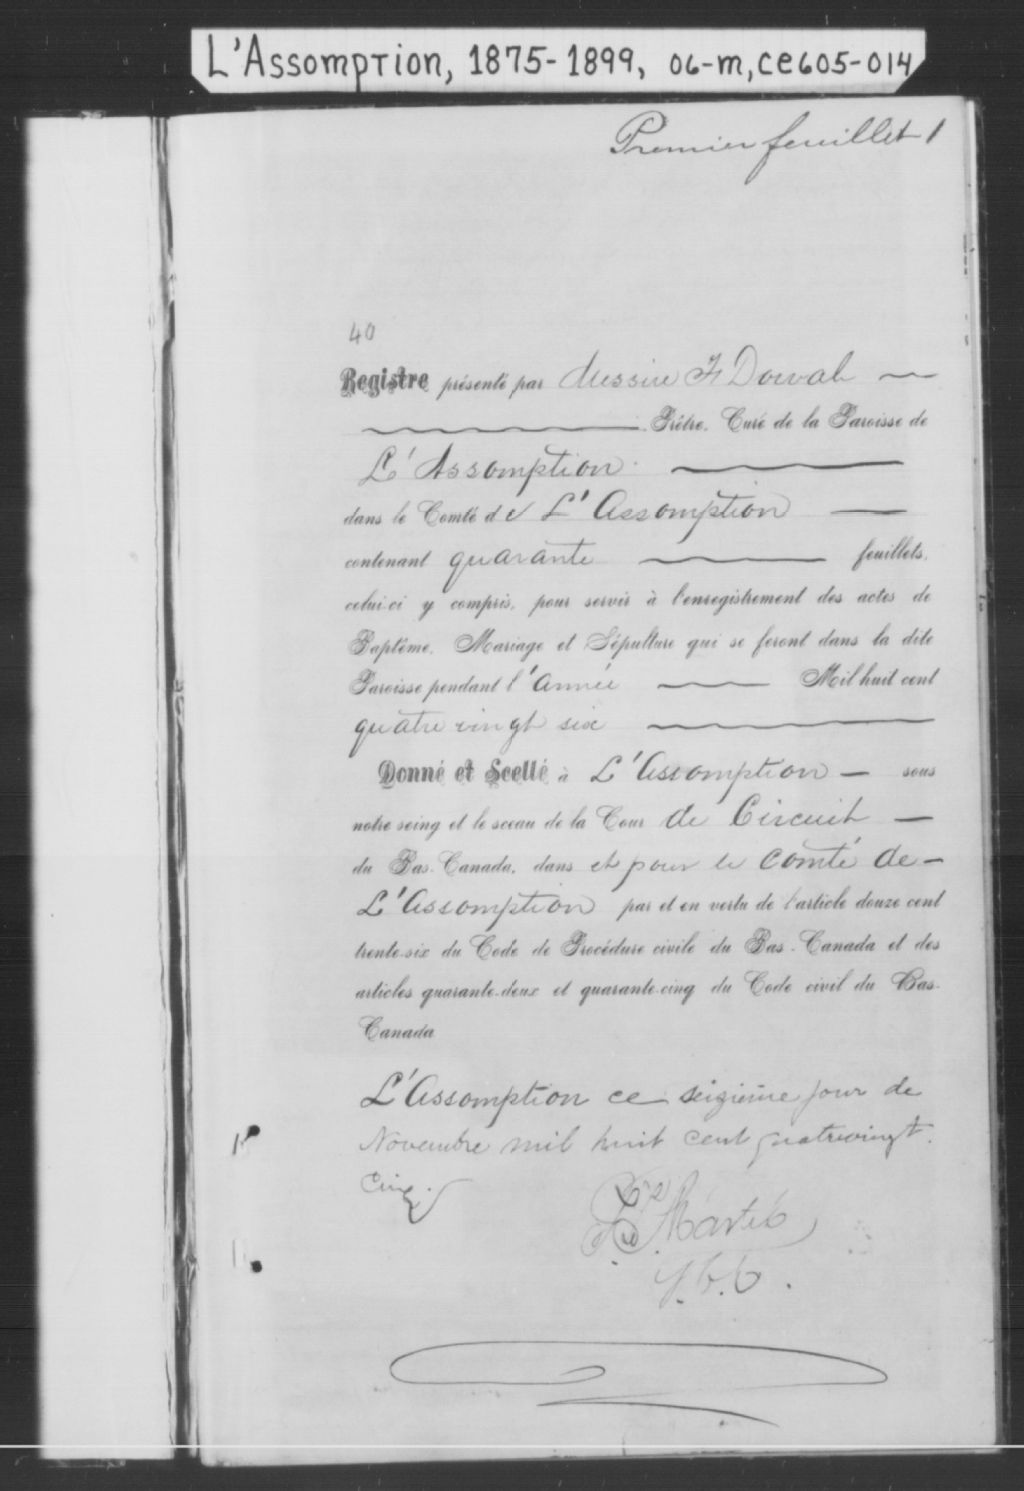 L'Assomption, 1875-1899, 06-m, ce605-014
Premier feuillet 1
40
Registre présenté par Messire F Dorval
Prêtre, Curé de la Paroisse de
L'Assomption
dans le Comté de L'Assomption
contenant quarante feuillets,
celui-ci y compris, pour servir à l'enregistrement des actes de
Baptême, Mariage et Sépulture qui se feront dans la dite
Paroisse pendant l'année Mil huit cent
quatre vingt six
Donné et Scellé à L'Assomption sous
notre seing et le sceau de la Cour de Circuit
du Bas-Canada, dans et pour le comté de
L'Assomption par et en vertu de l'article douze cent
trente-six du Code de Procédure civile du Bas-Canada et des
articles quarante-deux et quarante-cinq du Code civil du Bas-
Canada
L'Assomption ce seizième jour de
Novembre mil huit cent quatrevingt.
Cinq.